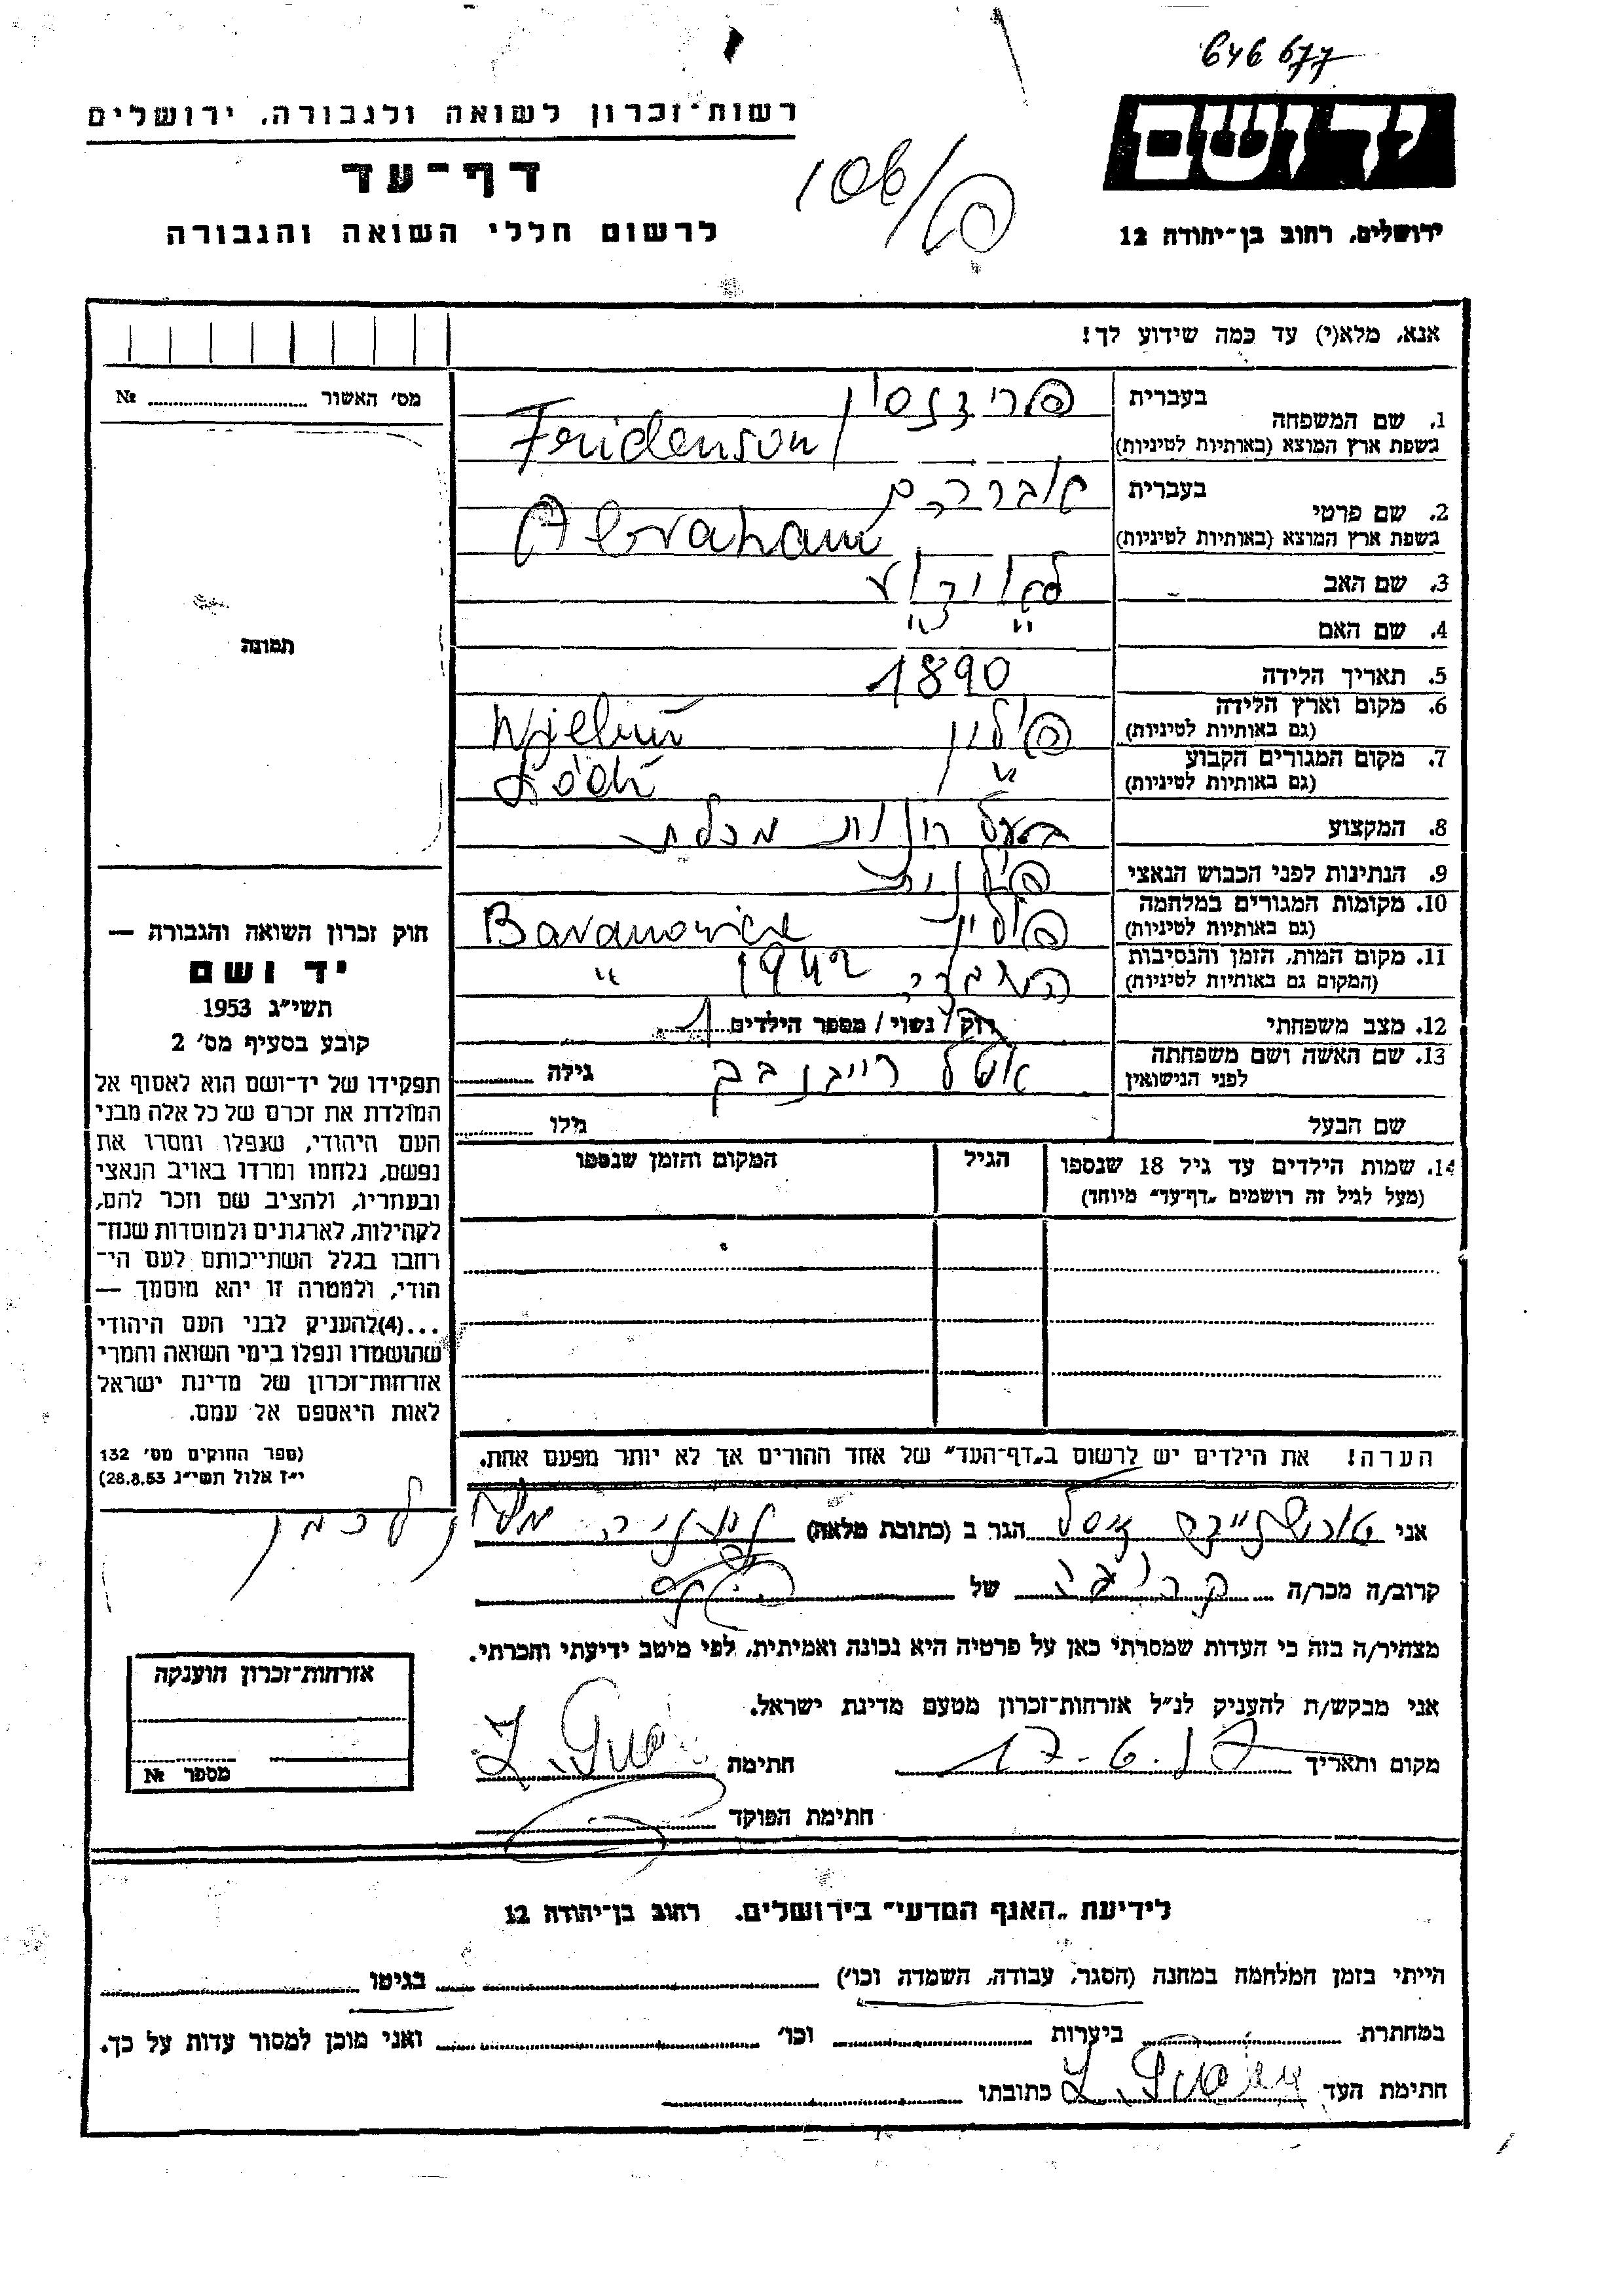 646 677
רשות־זכרון לשואה ולגבורה, ירושלים
יד ושם
דף־עד
106/פ
לרשום חללי השואה והגבורה
ירושלים, רחוב בן־יהודה 12
אנא, מלא(י) עד כמה שידוע לך!
מס׳ האשור № 
בעברית פרידנסון
1. שם המשפחה
בשפת ארץ המוצא (באותיות לטיניות) Fridenson
בעברית אברהם
2. שם פרטי
בשפת ארץ המוצא (באותיות לטיניות) Abraham
3. שם האב לא ידוע
4. שם האם " "
תמונה
5. תאריך הלידה 1890
6. מקום וארץ הלידה
(גם באותיות לטיניות) פולין Wjeluń
7. מקום המגורים הקבוע
(גם באותיות לטיניות) " Łódź
8. המקצוע בעל חנות מכלת
9. הנתינות לפני הכבוש הנאצי פולנית
10. מקומות המגורים במלחמה
(גם באותיות לטיניות) פולין Baranowicze
11. מקום המות, הזמן והנסיבות
(המקום גם באותיות לטיניות) 1942 "
12. מצב משפחתי רוק / נשוי / מספר הילדים 1
13. שם האשה ושם משפחתה
לפני הנישואין אסתל גילה
שם הבעל גילו
14. שמות הילדים עד גיל 18 שנספו הגיל המקום והזמן שנספו
(מעל לגיל זה רושמים „דף־עד" מיוחד)
חוק זכרון השואה והגבורה —
יד ושם
תשי״ג 1953
קובע בסעיף מס׳ 2
תפקידו של יד־ושם הוא לאסוף אל
המולדת את זכרם של כל אלה מבני
העם היהודי, שנפלו ומסרו את
נפשם, נלחמו ומרדו באויב הנאצי
ובעוזריו, ולהציב שם וזכר להם,
לקהילות, לארגונים ולמוסדות שנח־
רחבו בגלל השתייכותם לעם הי־
הודי, ולמטרה זו יהא מוסמך —
...(4)להעניק לבני העם היהודי
שהושמדו ונפלו בימי השואה והמרי
אזרחות־זכרון של מדינת ישראל
לאות היאספם אל עמם.
(ספר החוקים מס׳ 132
י״ז אלול תשי״ג 28.8.53)
הערה! את הילדים יש לרשום ב„דף־העד" של אחד ההורים אך לא יותר מפעם אחת.
אני הגר ב (כתובת מלאה) נתניה
קרוב/ה מכר/ה קרובה של
מצהיר/ה בזה כי העדות שמסרתי כאן על פרטיה היא נכונה ואמיתית, לפי מיטב ידיעתי והכרתי.
אני מבקש/ת להעניק לנ״ל אזרחות־זכרון מטעם מדינת ישראל.
מקום ותאריך 17.6. חתימת
חתימת הפוקד
אזרחות־זכרון הוענקה
מספר №
לידיעת „האגף המדעי" בירושלים. רחוב בן־יהודה 12
הייתי בזמן המלחמה במחנה (הסגר, עבודה, השמדה וכו׳) בגיטו
במחתרת ביערות וכו׳ ואני מוכן למסור עדות על כך.
חתימת העד כתובתו